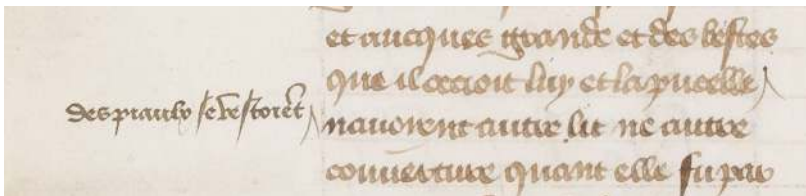 et aucques grande et des bestes
que il occioit luy et la pucelle
des piaulx se vestoiēt
nauoient autre lit ne autre
couuerture quant elle fu par